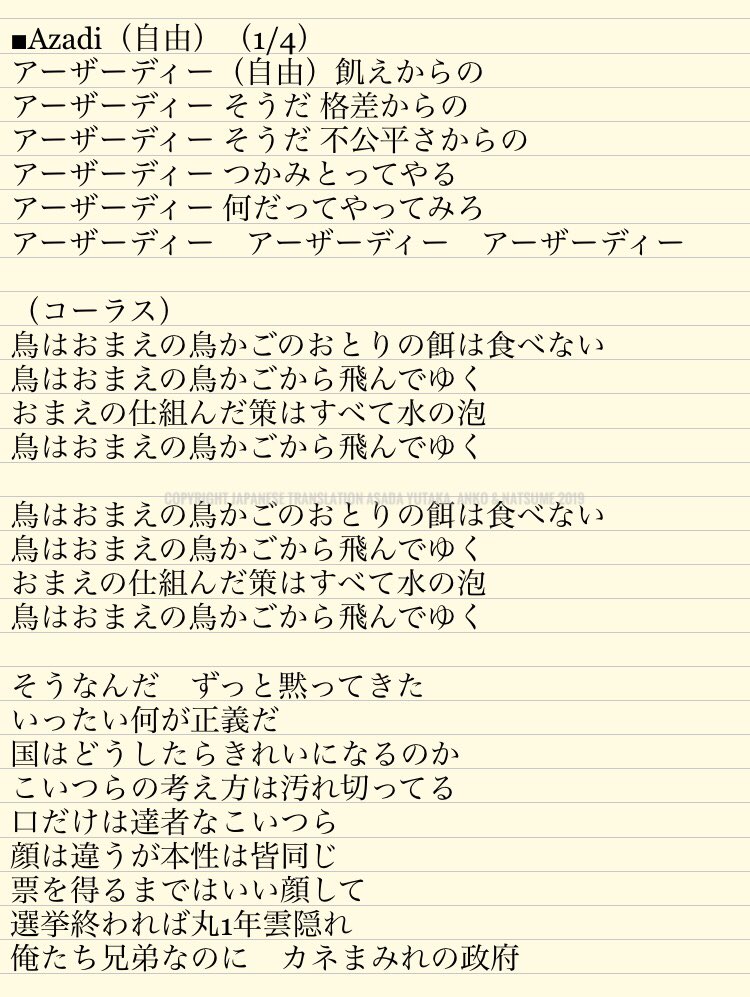 ■Azadi（自由）（1/4）
アーザーディー（自由）飢えからの
アーザーディー そうだ 格差からの
アーザーディー そうだ 不公平さからの
アーザーディー つかみとってやる
アーザーディー 何だってやってみろ
アーザーディー　アーザーディー　アーザーディー
（コーラス）
鳥はおまえの鳥かごのおとりの餌は食べない
鳥はおまえの鳥かごから飛んでゆく
おまえの仕組んだ策はすべて水の泡
鳥はおまえの鳥かごから飛んでゆく
COPYRIGHT JAPANESE TRANSLATION ASADA YUTAKA, ANKO & NATSUME 2019
鳥はおまえの鳥かごのおとりの餌は食べない
鳥はおまえの鳥かごから飛んでゆく
おまえの仕組んだ策はすべて水の泡
鳥はおまえの鳥かごから飛んでゆく
そうなんだ　ずっと黙ってきた
いったい何が正義だ
国はどうしたらきれいになるのか
こいつらの考え方は汚れ切ってる
口だけは達者なこいつら
顔は違うが本性は皆同じ
票を得るまではいい顔して
選挙終われば丸1年雲隠れ
俺たち兄弟なのに　カネまみれの政府